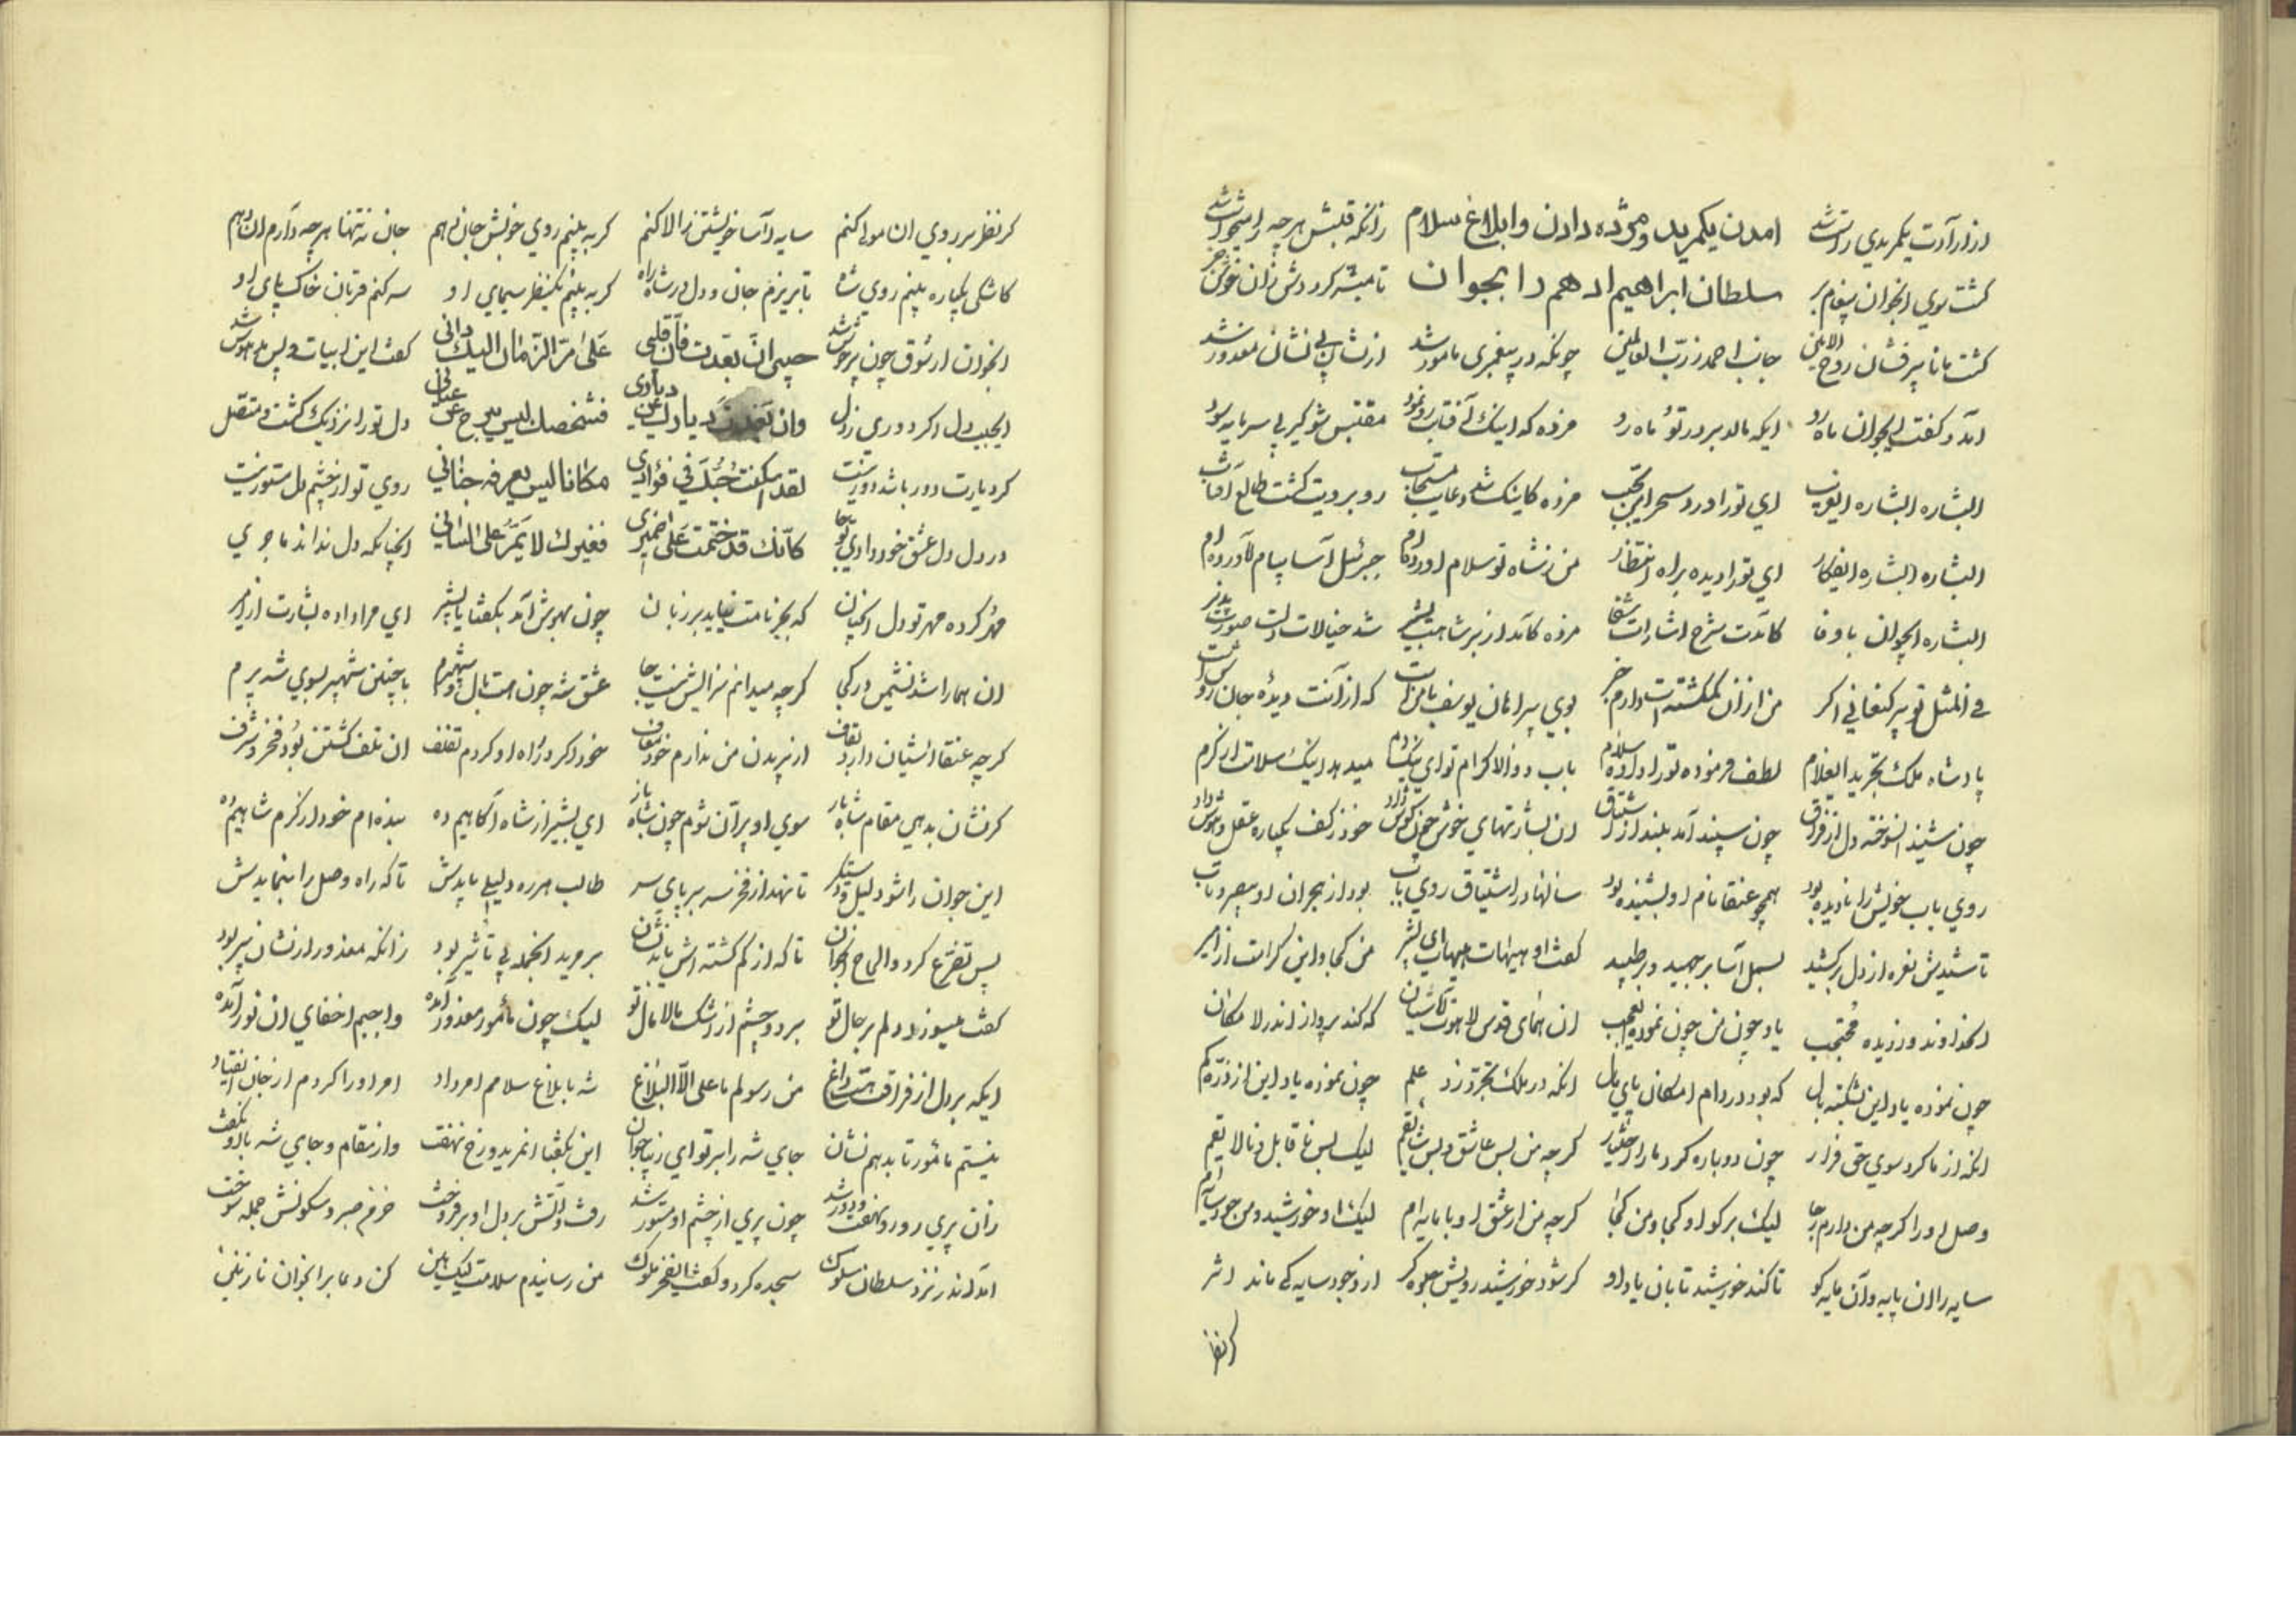 امدن یکمرید و مژده دادن وابلاغ سلام
سلطان ابراهیم ادهم را بجوان
آمد و کفت ایجوان ماه رو ایکه مالد بر در تو ماه رو مژده که اینک آفتابت رو نمود
البشاره البشاره ای تو را مژده کاینک شد دعایت مستجاب رو برویت کشت طالع آفتاب
البشاره البشاره ایفکار ای تو را دیده براه انتظار من ز شاه تو سلام آورده ام جبرئیل آسا پیام آورده ام
البشاره ایجوان باوفا کآمدت شرح اشارات شفا مژده کآمد از بر شاهت بشیر شد خیالات دلت صورت پذیر
فی المثل تو پیر کنعانی اکر من از ان کمکشته ات دارم خبر بوی پیراهان یوسف با من است که از آنت دیده جان روشن است
پادشاه ملک تجرید ایغلام لطف فرموده تو را داده سلام باب والا کرام تو ای نیکنام میدهد اینک سلامت از کرم
چون شنید انسوخته دل از فراق چون سپند آمد بلند از اشتیاق ان بشارتهای خوش چون کوش داد خود ز کف یکباره عقل و هوش داد
روی باب خویش را نادیده بود همچو عنقا نام او بشنیده بود سالها در اشتیاق روی باب بود از هجران او بیصبر و تاب
تا شنیدش نعره از دل برکشید بسمل آسا بر جهید و بر طپید کفت او هیهات هیهات ای بشیر من کجا و این کرامت از امیر
یاد چون من چون نموده یعجب ان همای قدس لاهوت آشیان که کند پرواز اندر لا مکان
چون نموده یاد این شکسته بال که بود در دام امکان پای مال انکه در ملک تجرد زد علم چون نموده یاد این از ذره کم
انکه از ما کرد سوی حق فرار چون دوباره کرد ما را اختیار کرچه من بس عاشق و بس شایقم لیک بس نا قابل و نالایقم
وصل او را کرچه من دارم رجا لیک برکو او کجا و من کجا کرچه من از عشق او با مایه ام لیک او خورشید و من چون سایه ام
سایه را ان پایه و آن مایه کو تا کند خورشید تابان یاد او کر شود خورشید رویش جلوه کر از وجود سایه کی ماند اثر
کر نظر
کر نظر بر روی ان مولی کنم سایه آسا خویشتن را لا کنم کر به بینم روی خوبش جان دهم جان نه تنها هرچه دارم ان دهم
کاشکی یکباره بینم روی شاه تا بریزم جان و دل در شاه راه کر به بینم یکنظر سیمای او سر کنم قربان خاک پای او
انجوان از شوق چون پرجوش شد حبیبی ان بعدت فان قلبی علی مر الزمان الیک دانی کفت این ابیات و پس مدهوش شد
ایحبیب دل اکر دوری ز دل وان بعدت دیارک عن دیاری فشخصك لیس یبرح عن عیانی دل تو را نزدیک کشت و متصل
کر دیارت دور باشد دور نیست لقد اسکنت حبك فی فؤادی مکانا لیس یعرفه جنانی روی تو از چشم دل مستور نیست
در دل دل عشق خود دادی تو جا کانك قد ختمت علی ضمیری فغیرك لا یمر علی لسانی انچنانکه دل نداند ماجری
مهر کرده مهر تو دل انچنان که بجز نامت نیاید بر زبان چون بهوش آمد بکفتا یا بشیر ای مرا داده بشارت از امیر
ان هما را شد نشیمن در کجا کرچه میدانم منزلش نیست جا عشق شه چون هست بال و شهپرم با چنین شهپر بسوی شه پرم
کرچه عنقا آشیان دارد بقاف از پریدن من ندارم خود معاف خود اکر در راه او کردم تلف ان تلف کشتن بود فخر و شرف
کر نشان بدهی مقام شاه باز سوی او پران شوم چون شاه باز ای بشیر از شاه آکاهیم ده بنده ام خود از کرم شاهیم ده
این جوان را شو دلیل و دستکیر تا نهد از فخر سر بر پای سر طالب هر ره دلیلی بایدش تا که راه وصل را بنمایدش
پس تضرع کرد و الحاح انجوان تا که از کم کشته اش یابد نشان بر مرید انجمله بی تأثیر بود زانکه معذور از نشان پیر بود
کفت میسوزد دلم بر حال تو بر دو چشم از اشک مالامال تو لیک چون مأمور معذور آمده واجبم اخفای ان نور آمده
ایکه بر دل از فراقت هست داغ من رسولم ما علی الا البلاغ شه بابلاغ سلامم امر داد امر او را کردم از جان انقیاد
نیستم مأمور تا بدهم نشان جای شه را بر تو ای زیبا جوان این بکفتا انمرید و رخ نهفت وز مقام و جای شه با او نکفت
زان پری رو رو نهفت و دور شد چون پری از چشم او مستور شد رفت و آتش بر دل او بر فروخت خرمن صبر و سکونش جمله سوخت
آمد اندر نزد سلطان سلوک سجده کرد و کفت ایفخر ملوک من رساندم سلامت لیک هین کن دعا بر انجوان نازنین